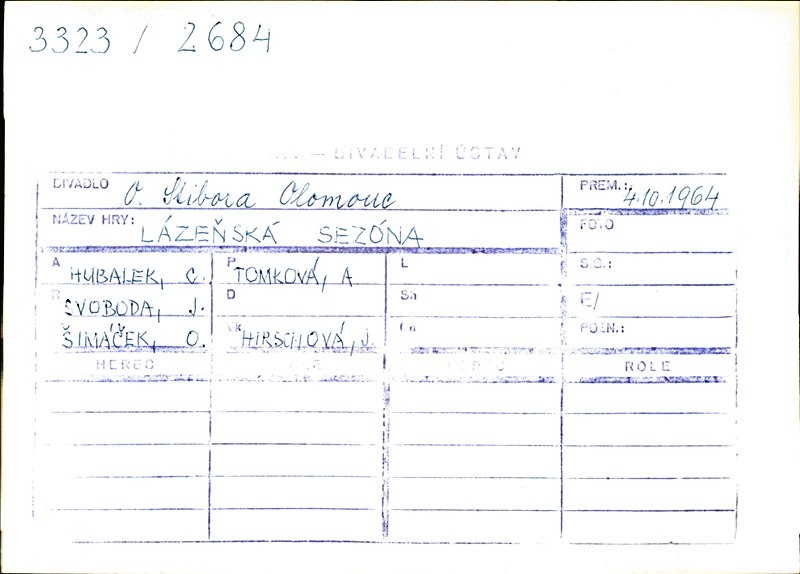 3323 / 2684
— DIVADELNÍ ÚSTAV
DIVADLO O. Stibora Olomouc PREM.: 4.10.1964
NÁZEV HRY: LÁZEŇSKÁ SEZÓNA FOTO
A HUBALEK, C. P TOMKOVÁ, A L S.G.:
R SVOBODA, J. D Sh E/
ŠIMÁČEK, O. VK HIRSCHOVÁ, J. POZN.:
HEREC ROLE HEREC ROLE